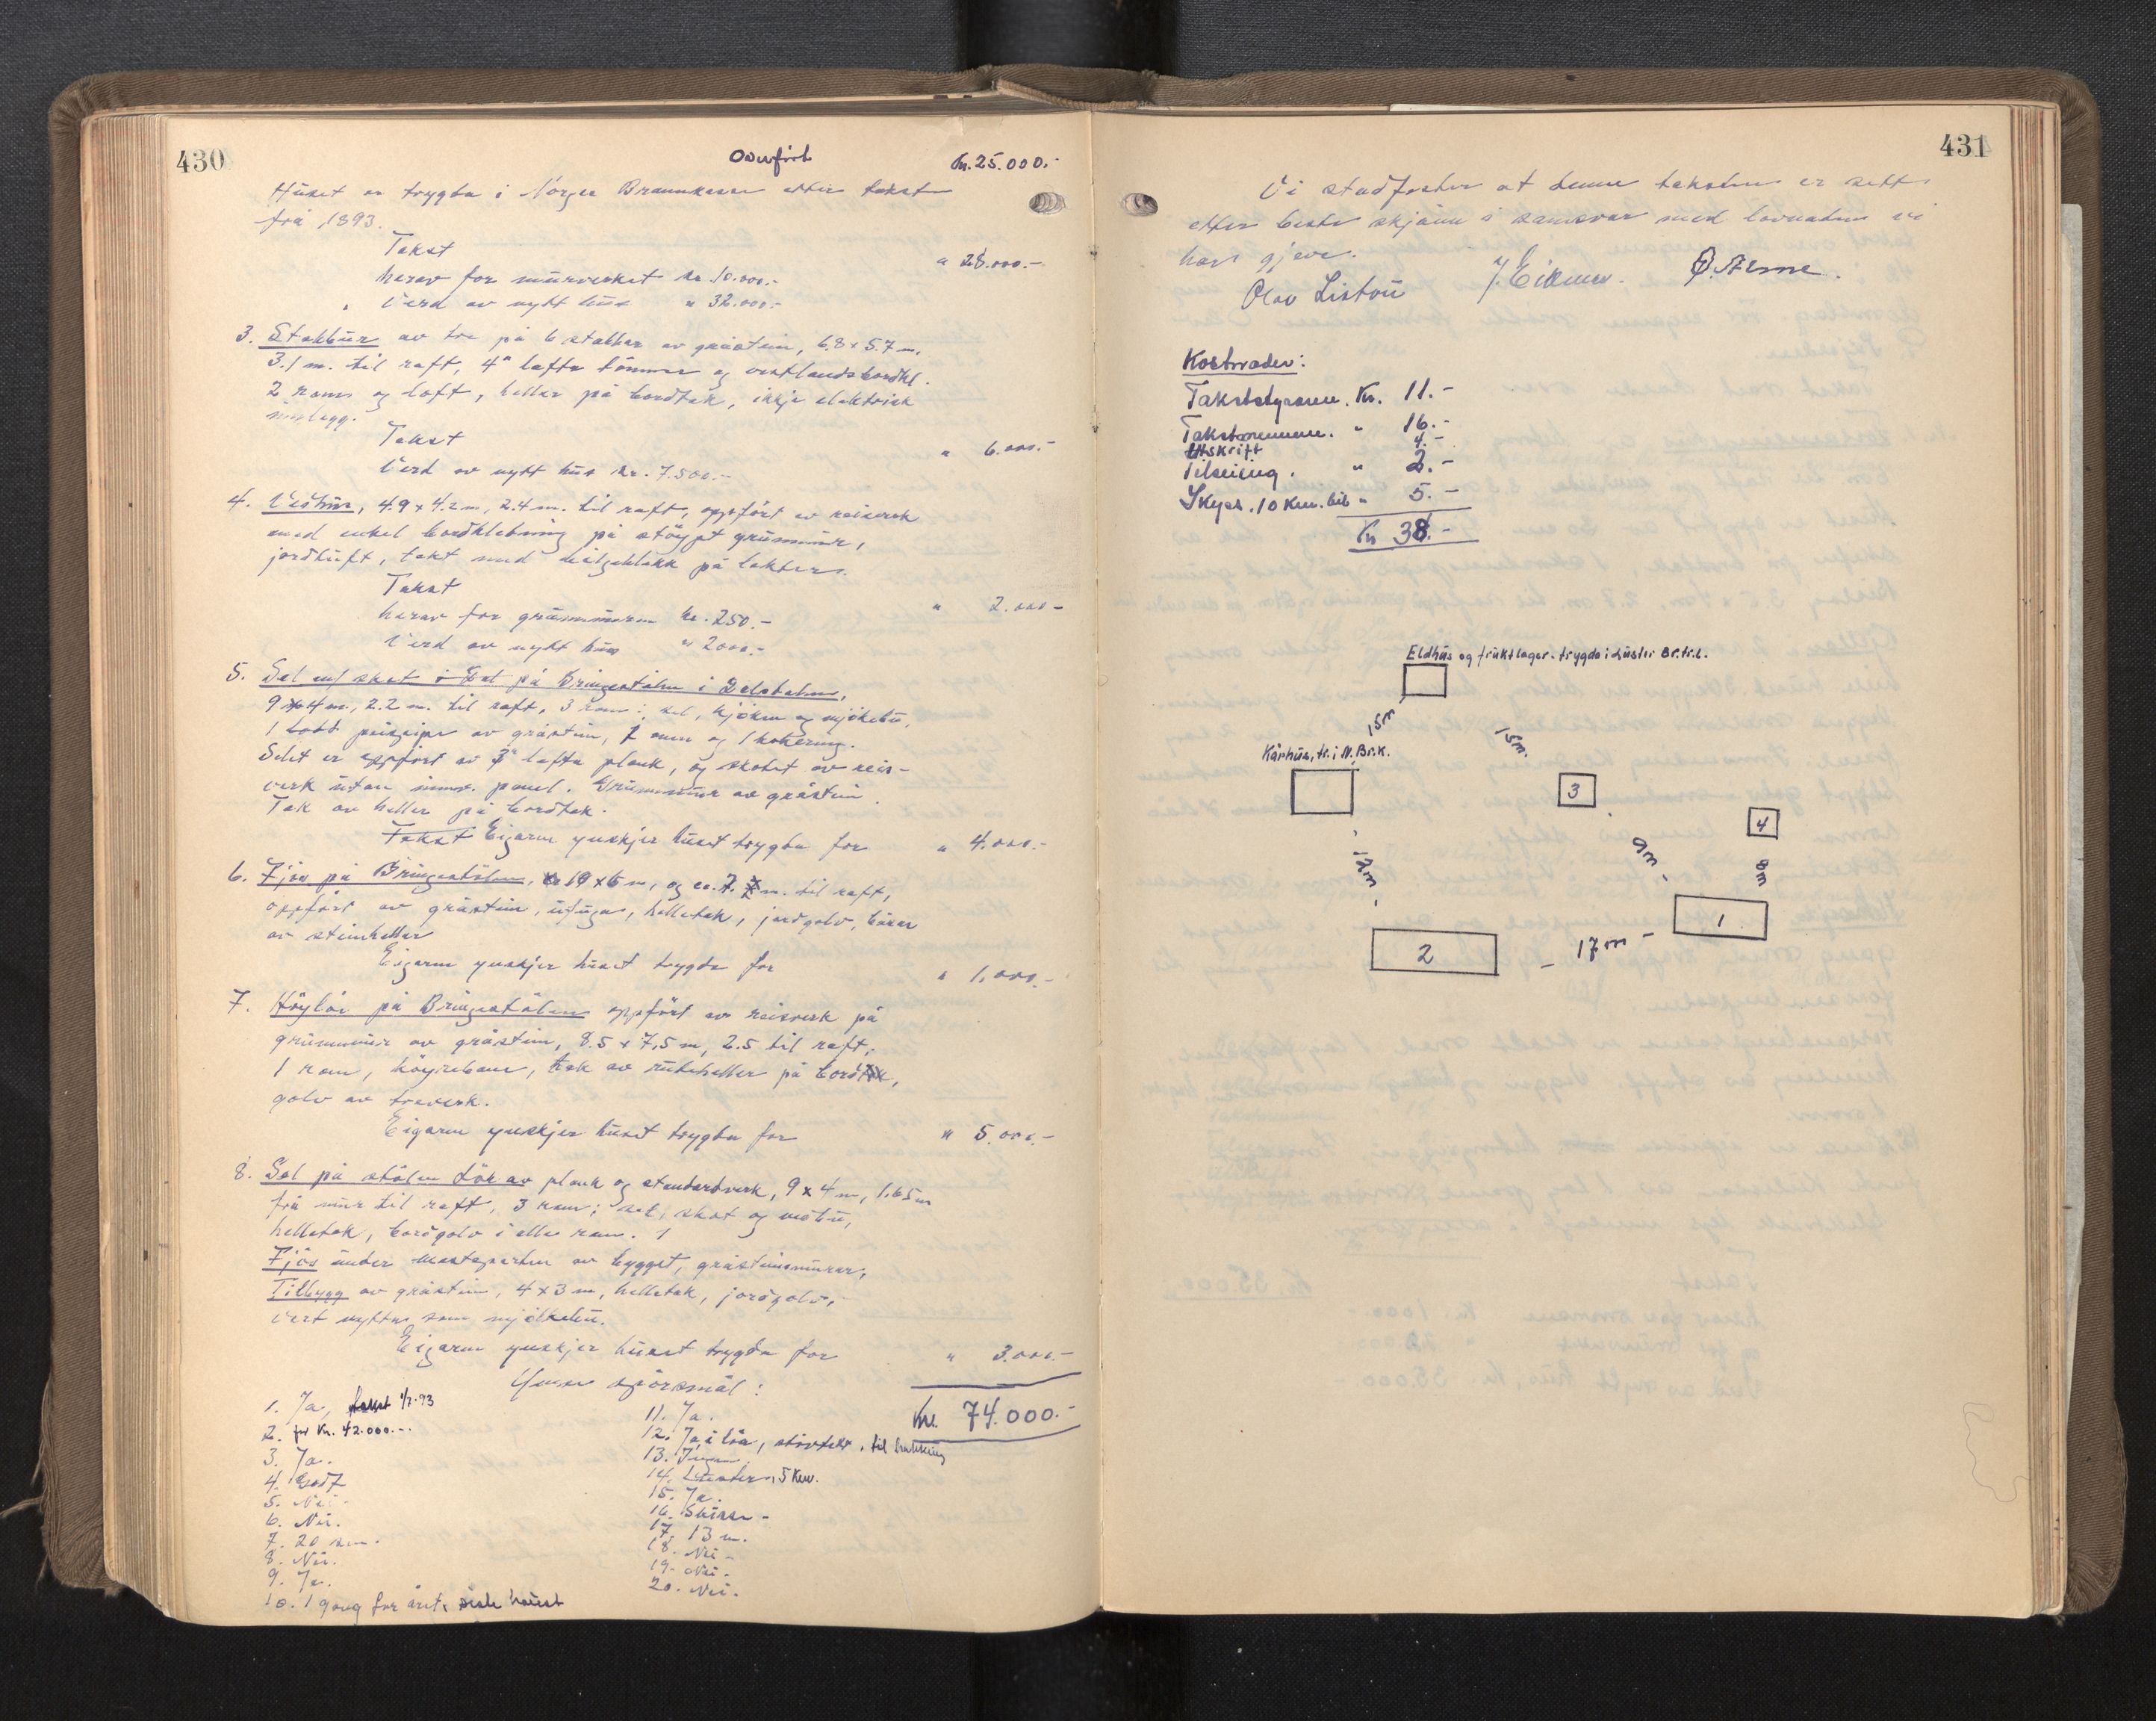 430
Overført Kr. 25.000.-
Huset er trygda i Norges Brannkasse etter takst
frå 1893.
Takst " 28.000.-
herav for murverket kr. 10.000.-
Verd av nytt hus " 32.000.-
3. Stabbur av tre på 6 stabbar av gråstein, 6.8 x 5.7 m.
3.1 m. til raft, 4" lafta tømmer og vestlandsbordkl.
2 roms og loft, heller på bordtak, ikkje elektrisk
innlegg.
Takst " 6.000.-
Verd av nytt hus kr. 7.500.-
4. Vedhus, 4.9 x 4.2 m, 2.4 m. til raft, oppført av reisverk
med enkel bordkledning på støypt grunnmur,
jordtuft, tekt med bølgeblekk på lekter.
Takst " 2.000.-
herav for grunnmuren kr. 250.-
Verd av nytt hus " 2000.-
5. Sel m/ skot på Bringestølen i
9 x 4 m., 2.2 m. til raft, 3 rom: sel, kjøken og mjølkebu,
1 peispipe av gråstein, 1 omn og 1 kokering.
Selet er oppført av 3" lafta plank, og skotet av reis-
verk utan innv. panel. Grunnmur av gråstein.
Tak av heller på bordtak.
Takst Eigaren ynskjer huset trygda for " 4.000.-
6. Fjøs på Bringestølen, x 6 m, og ca. 2. m. til raft,
oppført av gråstein, ufuga, helletak, jordgolv, båsar
av steinheller
Eigaren ynskjer huset trygda for " 1.000.-
7. Høyløe på Bringestølen oppført av reisverk på
grunnmur av gråstein, 8.5 x 7.5 m, 2.5 til raft,
1 rom, tak av ruteheller på bord,
golv av treverk.
Eigaren ynskjer huset trygda for " 5.000.-
8. Sel på stølen av plank og standardverk, 9 x 4 m, 1.65 m
frå mur til raft, 3 rom: sel, skot og
helletak, bordgolv i alle rom.
Fjøs under mesteparten av bygget, gråsteinsmurar,
Tilbygg av gråstein, 4 x 3 m, helletak, jordgolv,
vert nytta som mjølkebu.
Eigaren ynskjer huset trygda for " 3.000.-
Ymse spørsmål: Kr. 74.000.-
1. Ja, takst 1/7-93
2. for Kr. 42.000.-
3. Ja.
4. Godt
5. Nei
6. Nei.
7. 20 sm.
8. Nei.
9. Ja.
10. 1 gong for året, siste haust
11. Ja.
12. Ja, i løa,
13. Ingen
14. Luster, 5 km.
15. Ja.
16.
17. 13 m.
18. Nei -
19. Nei -
20. Nei.
431
Vi stadfester at denne taksten er sett
etter beste skjønn i samsvar med lovnaden vi
har gjeve.
Olav Listou
Kostnader:
Takstutstyrarne. Kr. 11.-
Takstmennene. " 16.-
Utskrift 4.-
Tilseiing. " 2.-
Skyss. 10 km. bil " 5.-
Kr 38.-
Eldhus og fruktlager. trygda i Luster Br.tr.l.
15 m
15 m.
Kårhus, tr. i N. Br.k.
3
4
12 m.
9 m.
8 m
1
2
17 m